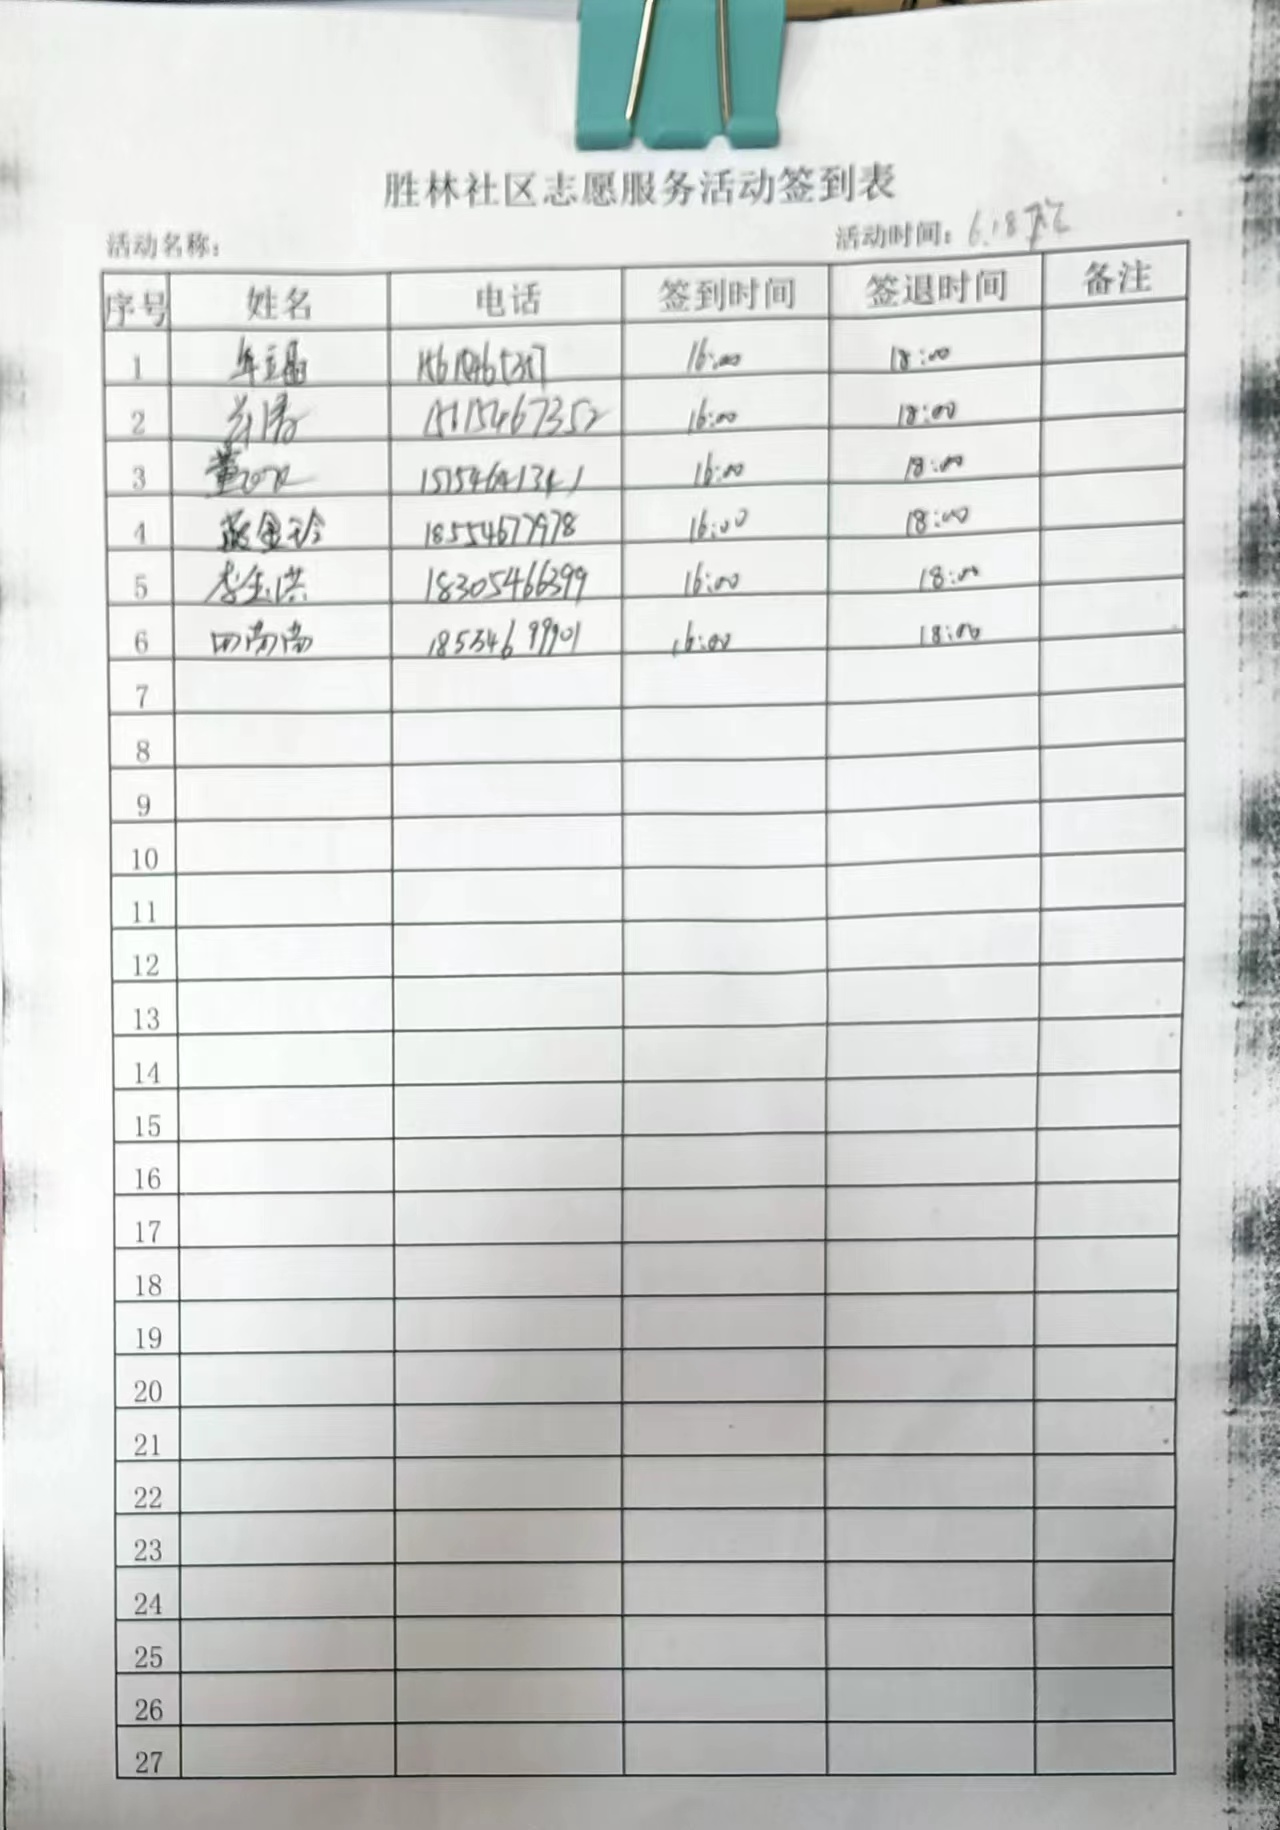 胜林社区志愿服务活动签到表
活动名称：
活动时间：6.18
序号 姓名 电话 签到时间 签退时间 备注
1 16:00 18:00
2 16:00 18:00
3 董 16:00 18:00
4 金玲 18554677978 16:00 18:00
5 李玉洪 18305466399 16:00 18:00
6 田南南 16:00 18:00
7
8
9
10
11
12
13
14
15
16
17
18
19
20
21
22
23
24
25
26
27